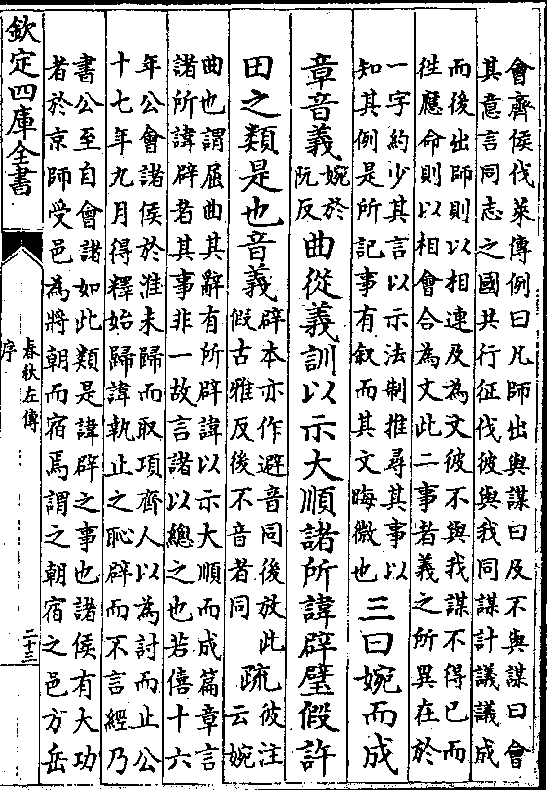 會齊侯伐萊傳例曰凡師出與謀曰及不與謀曰會
其意言同志之國共行征伐彼與我同謀計議議成
而後出師則以相連及為文彼不與我謀不得已而
徃應命則以相會合為文此二事者義之所異在於
一字約少其言以示法制推尋其事以
知其例是所記事有叙而其文晦微也
三曰婉而成
章音義
婉於
阮反
曲從義訓以示大順諸所諱辟璧假許
田之類是也音義
辟本亦作避音同後放此
假古雅反後不音者同
疏
彼注
云婉
曲也謂屈曲其辭有所辟諱以示大順而成篇章言
諸所諱辟者其事非一故言諸以總之也若僖十六
年公會諸侯於淮未歸而取項齊人以為討而止公
十七年九月得釋始歸諱執止之恥辟而不言經乃
書公至自會諸如此類是諱辟之事也諸侯有大功
者於京師受邑為將朝而宿焉謂之朝宿之邑方岳
欽定四庫全書
春秋左傳
序
二十三